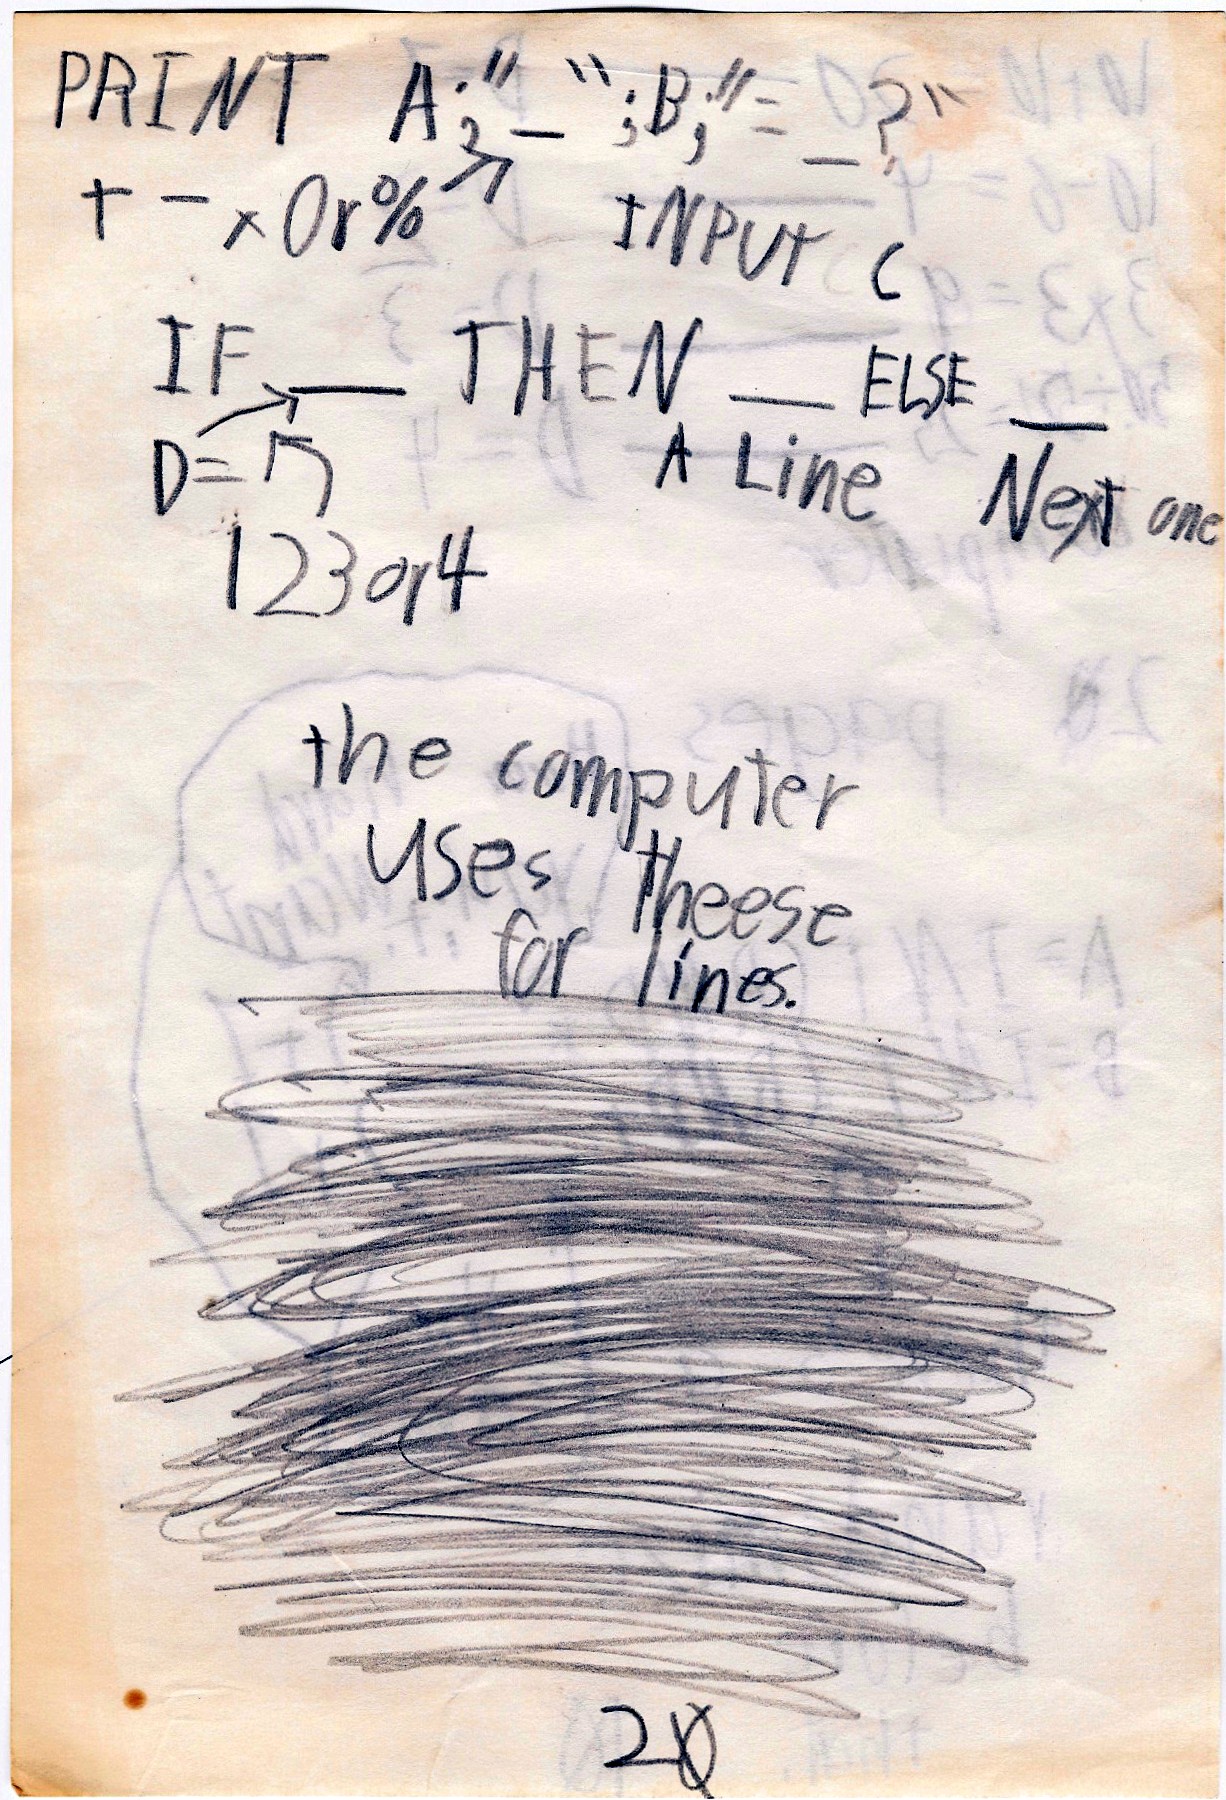 PRINT A;"_";B;"=_?"
+ - × Or %
INPUT C
IF ___ THEN ___ ELSE ___
D=
A Line
Next one
1 2 3 or 4
the computer
uses theese
for lines.
20